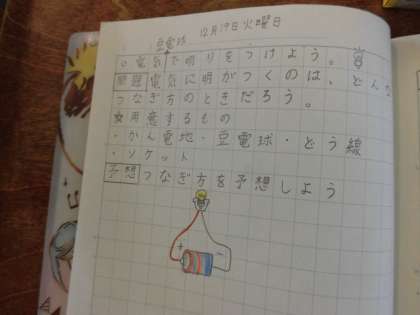 12月19日火曜日
豆電球
○電気で明りをつけよう。
問題電気に明がつくのは、どんな
つなぎ方のときだろう。
用意するもの
・かん電地・豆電球・どう線
・ソケット
予想つなぎ方を予想しよう
+
-